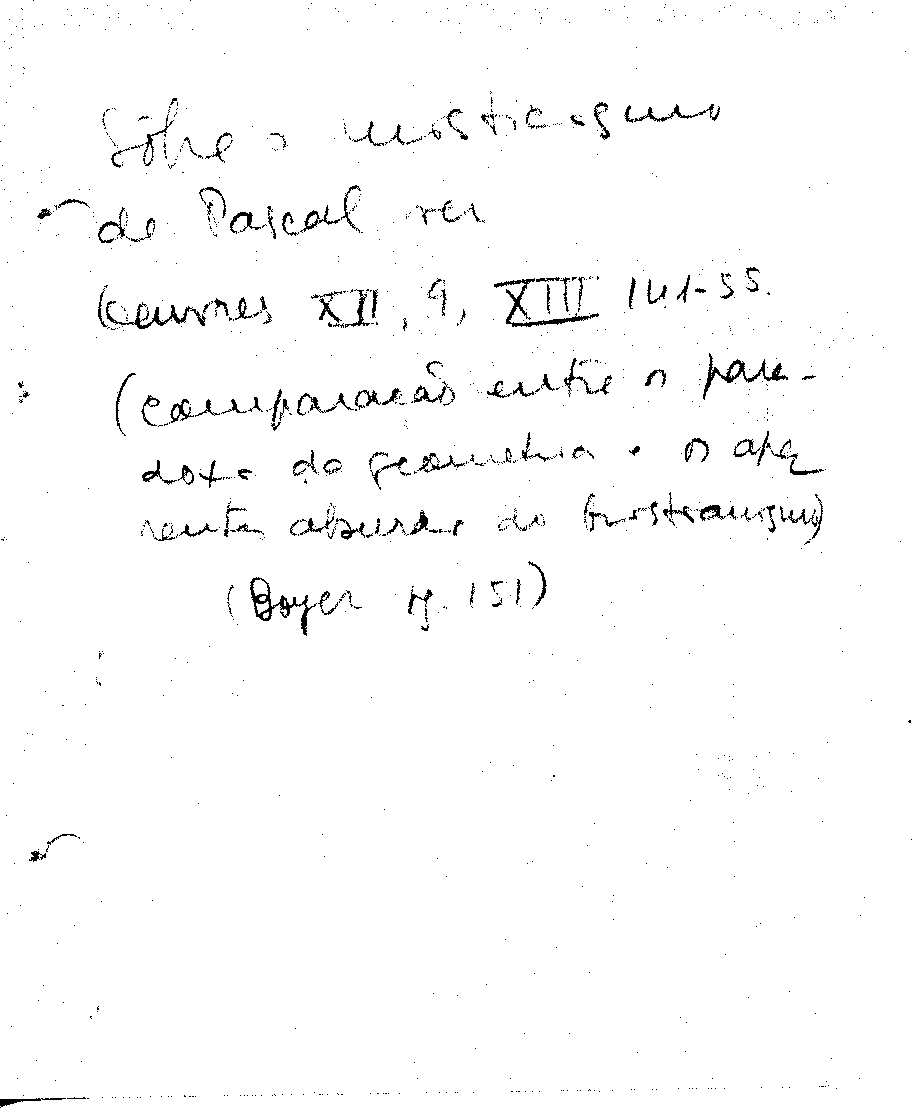 Sôbre o misticismo
de Pascal ver
Oeuvres XII, 9, XIII 141-55.
(comparação entre o para-
doxo da geometria e o apa
rente absurdo do Cristianismo)
(Boyer pg. 151)